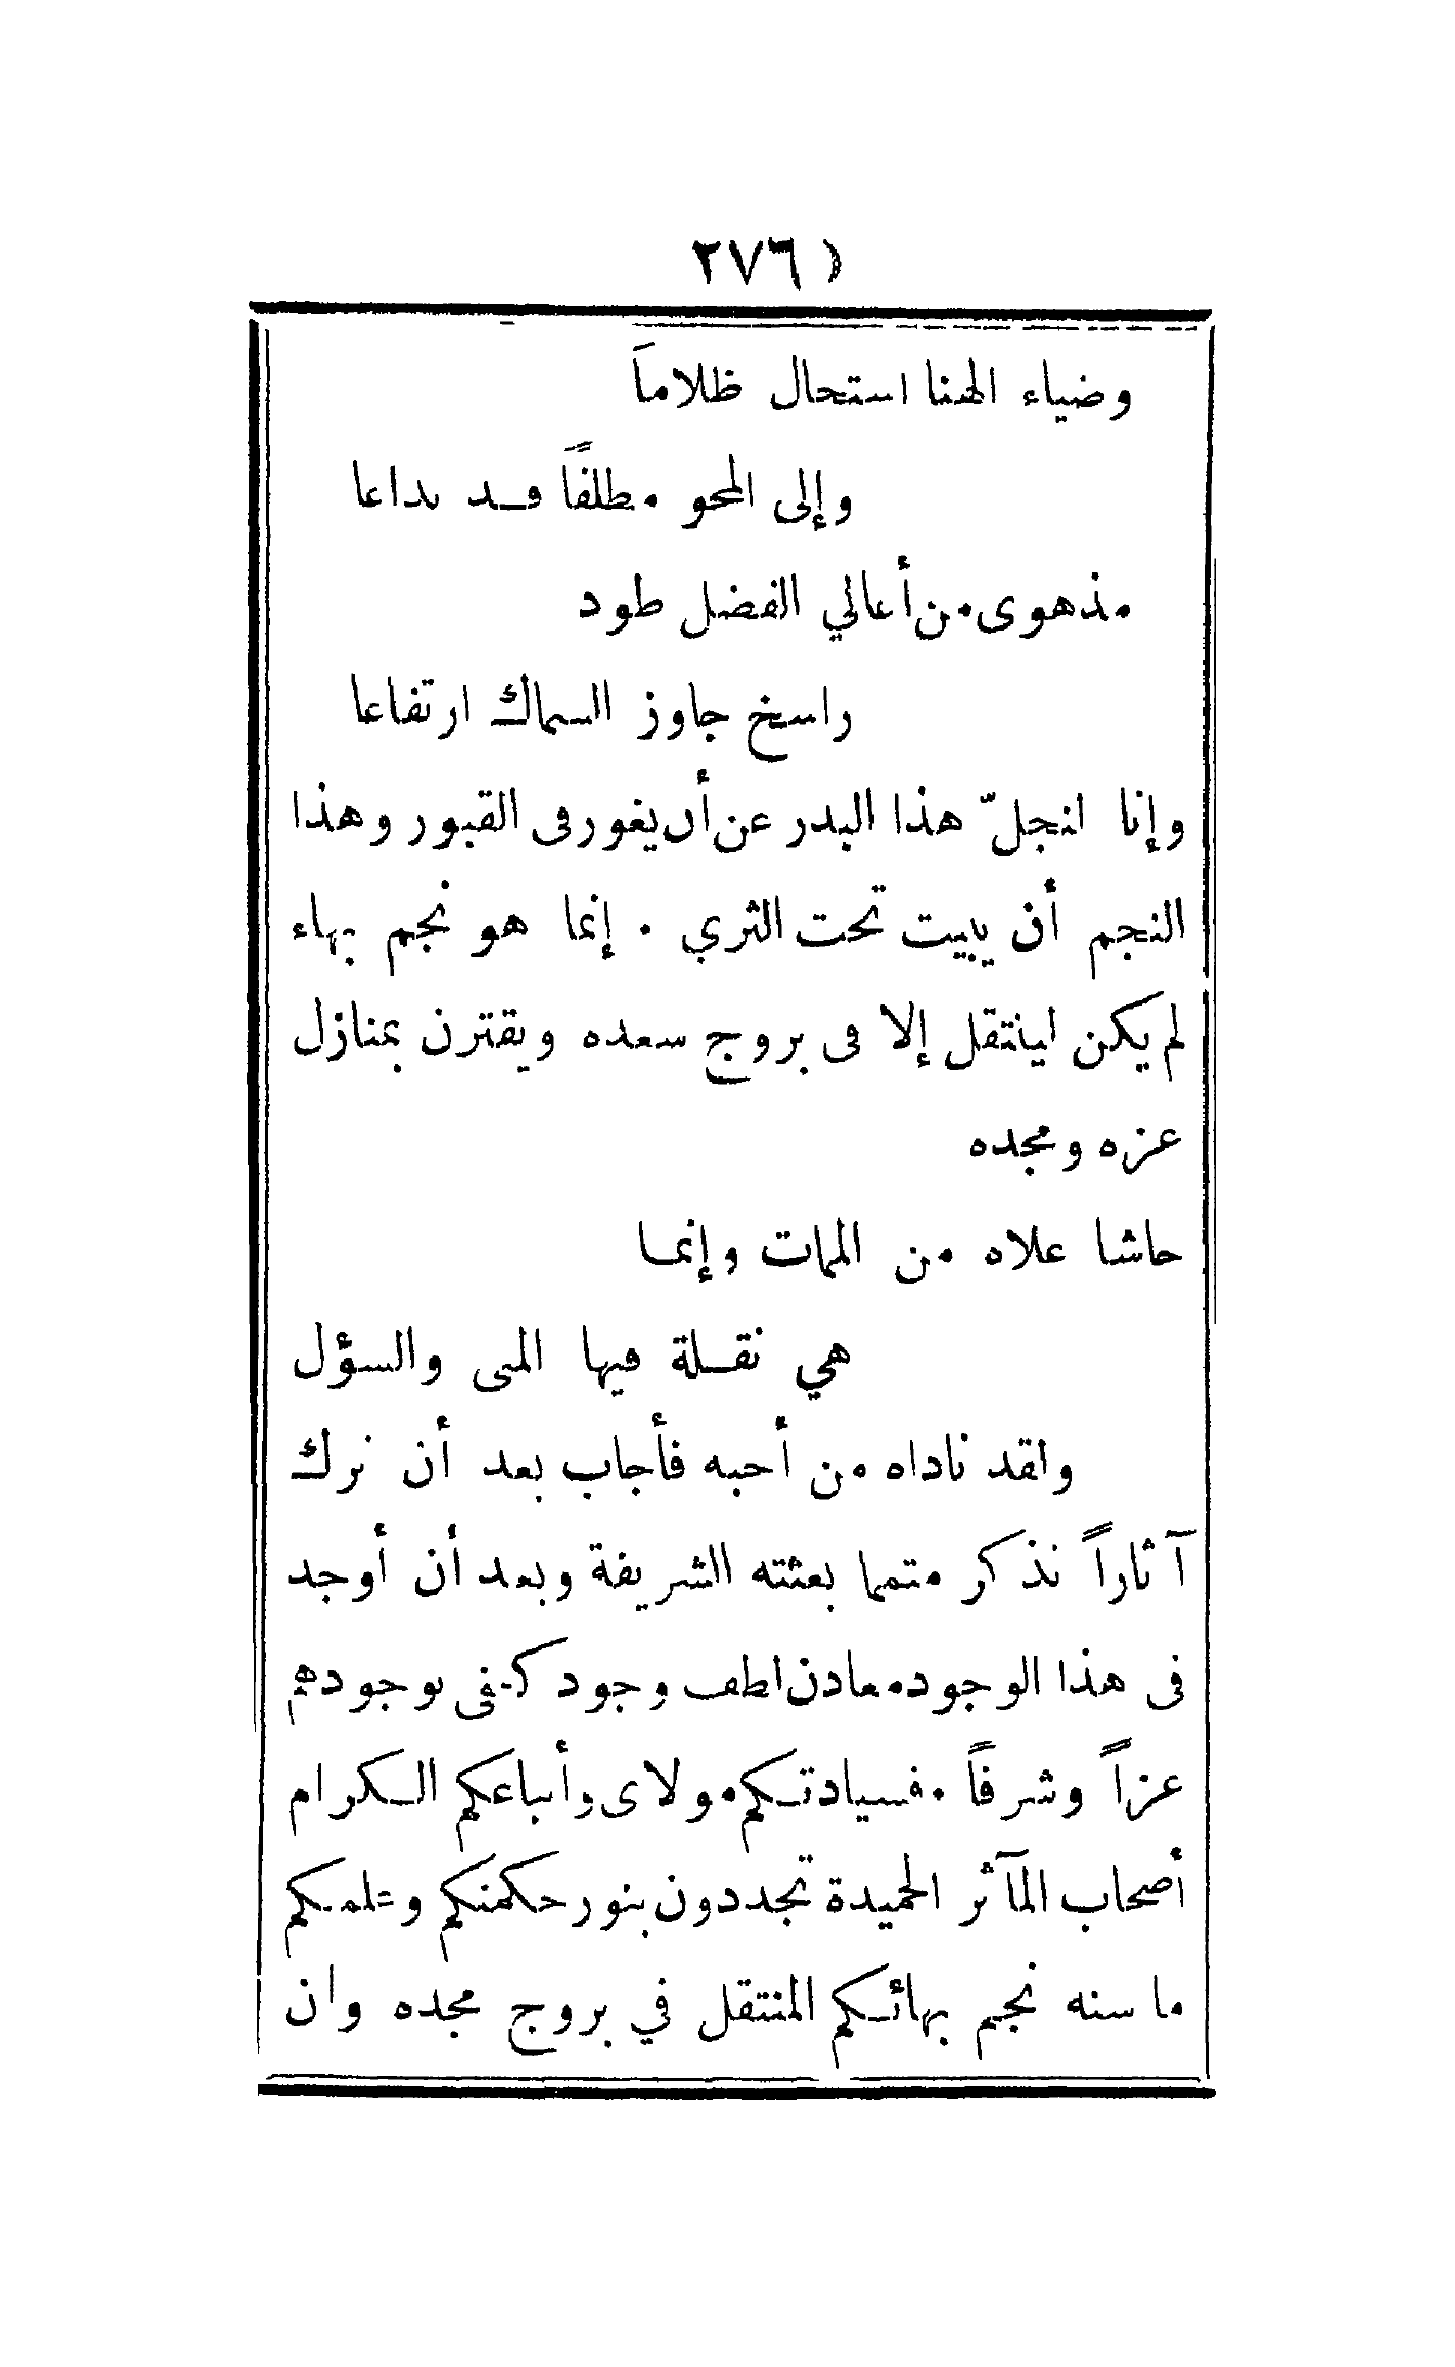 ( ٢٧٦
وضياء الهنا استحال ظلاماً
وإلى المحو مطلقاً قد تداعا
مذهوى من أعالي الفضل طود
راسخ جاوز السماك ارتفاعا
وإنا لنجلّ هذا البدر عن أن يغور فى القبور وهذا
النجم أن يبيت تحت الثري . إنما هو نجم بهاء
لم يكن لينتقل إلا فى بروج سعده ويقترن بمنازل
عزه ومجده
حاشا علاه من الممات وإنما
هي نقلة فيها المنى والسؤل
ولقد ناداه من أحبه فأجاب بعد أن ترك
آثاراً تذكر متمما بعثته الشريفة وبعد أن أوجد
فى هذا الوجود معادن لطف وجود كفى بوجودهم
عزاً وشرفاً . فسيادتكم مولاى وأتباعكم الكرام
أصحاب المآثر الحميدة تجددون بنور حكمتكم وعلمكم
ما سنه نجم بهائكم المنتقل في بروج مجده وان